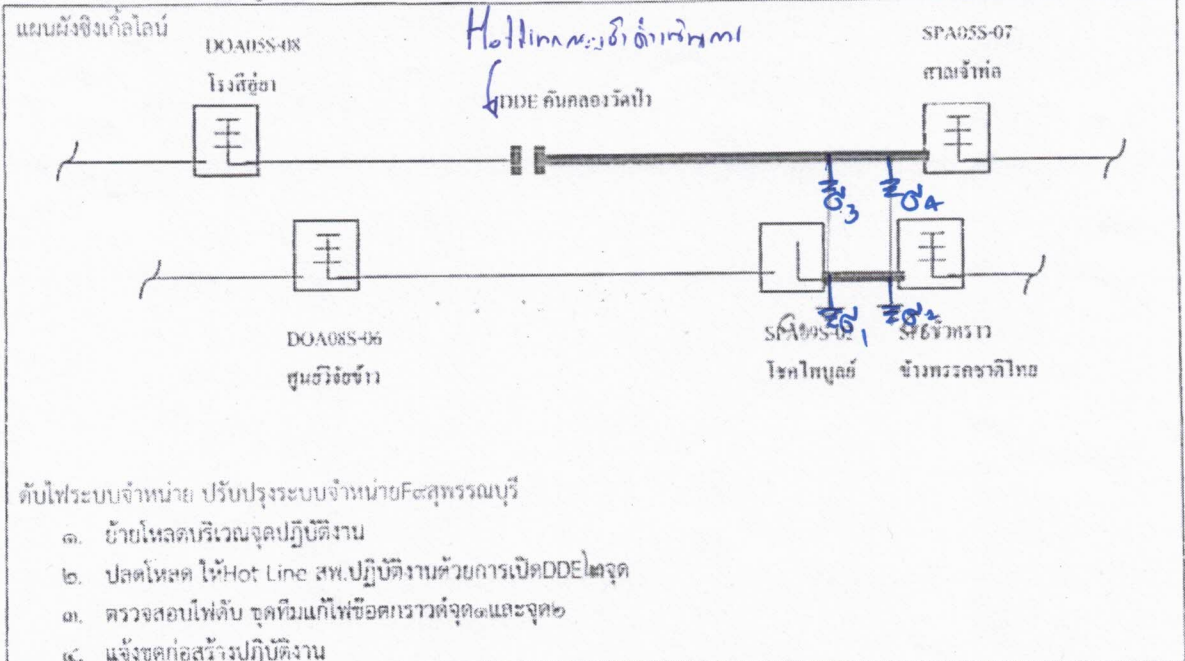 แผนผังซิงเกิ้ลไลน์
DOA05S-08
โรงสีอู่ยา
Hotline
DDE คันคลองวัดป่า
SPA05S-07
ศาลเจ้าพ่อ
จ3
จ4
จ1
จ2
DOA08S-06
ศูนย์วิจัยข้าว
โชคไพบูลย์
SF6ชั่วคราว
ข้างพรรคชาติไทย
ดับไฟระบบจำหน่าย ปรับปรุงระบบจำหน่ายF๙สุพรรณบุรี
๑. ย้ายโหลดบริเวณจุดปฏิบัติงาน
๒. ปลดโหลด ให้Hot Line สพ.ปฏิบัติงานด้วยการเปิดDDE จุด
๓. ตรวจสอบไฟดับ ชุดทีมแก้ไฟช๊อตกราวด์จุด๑และจุด๒
๔. แจ้งชุดก่อสร้างปฏิบัติงาน